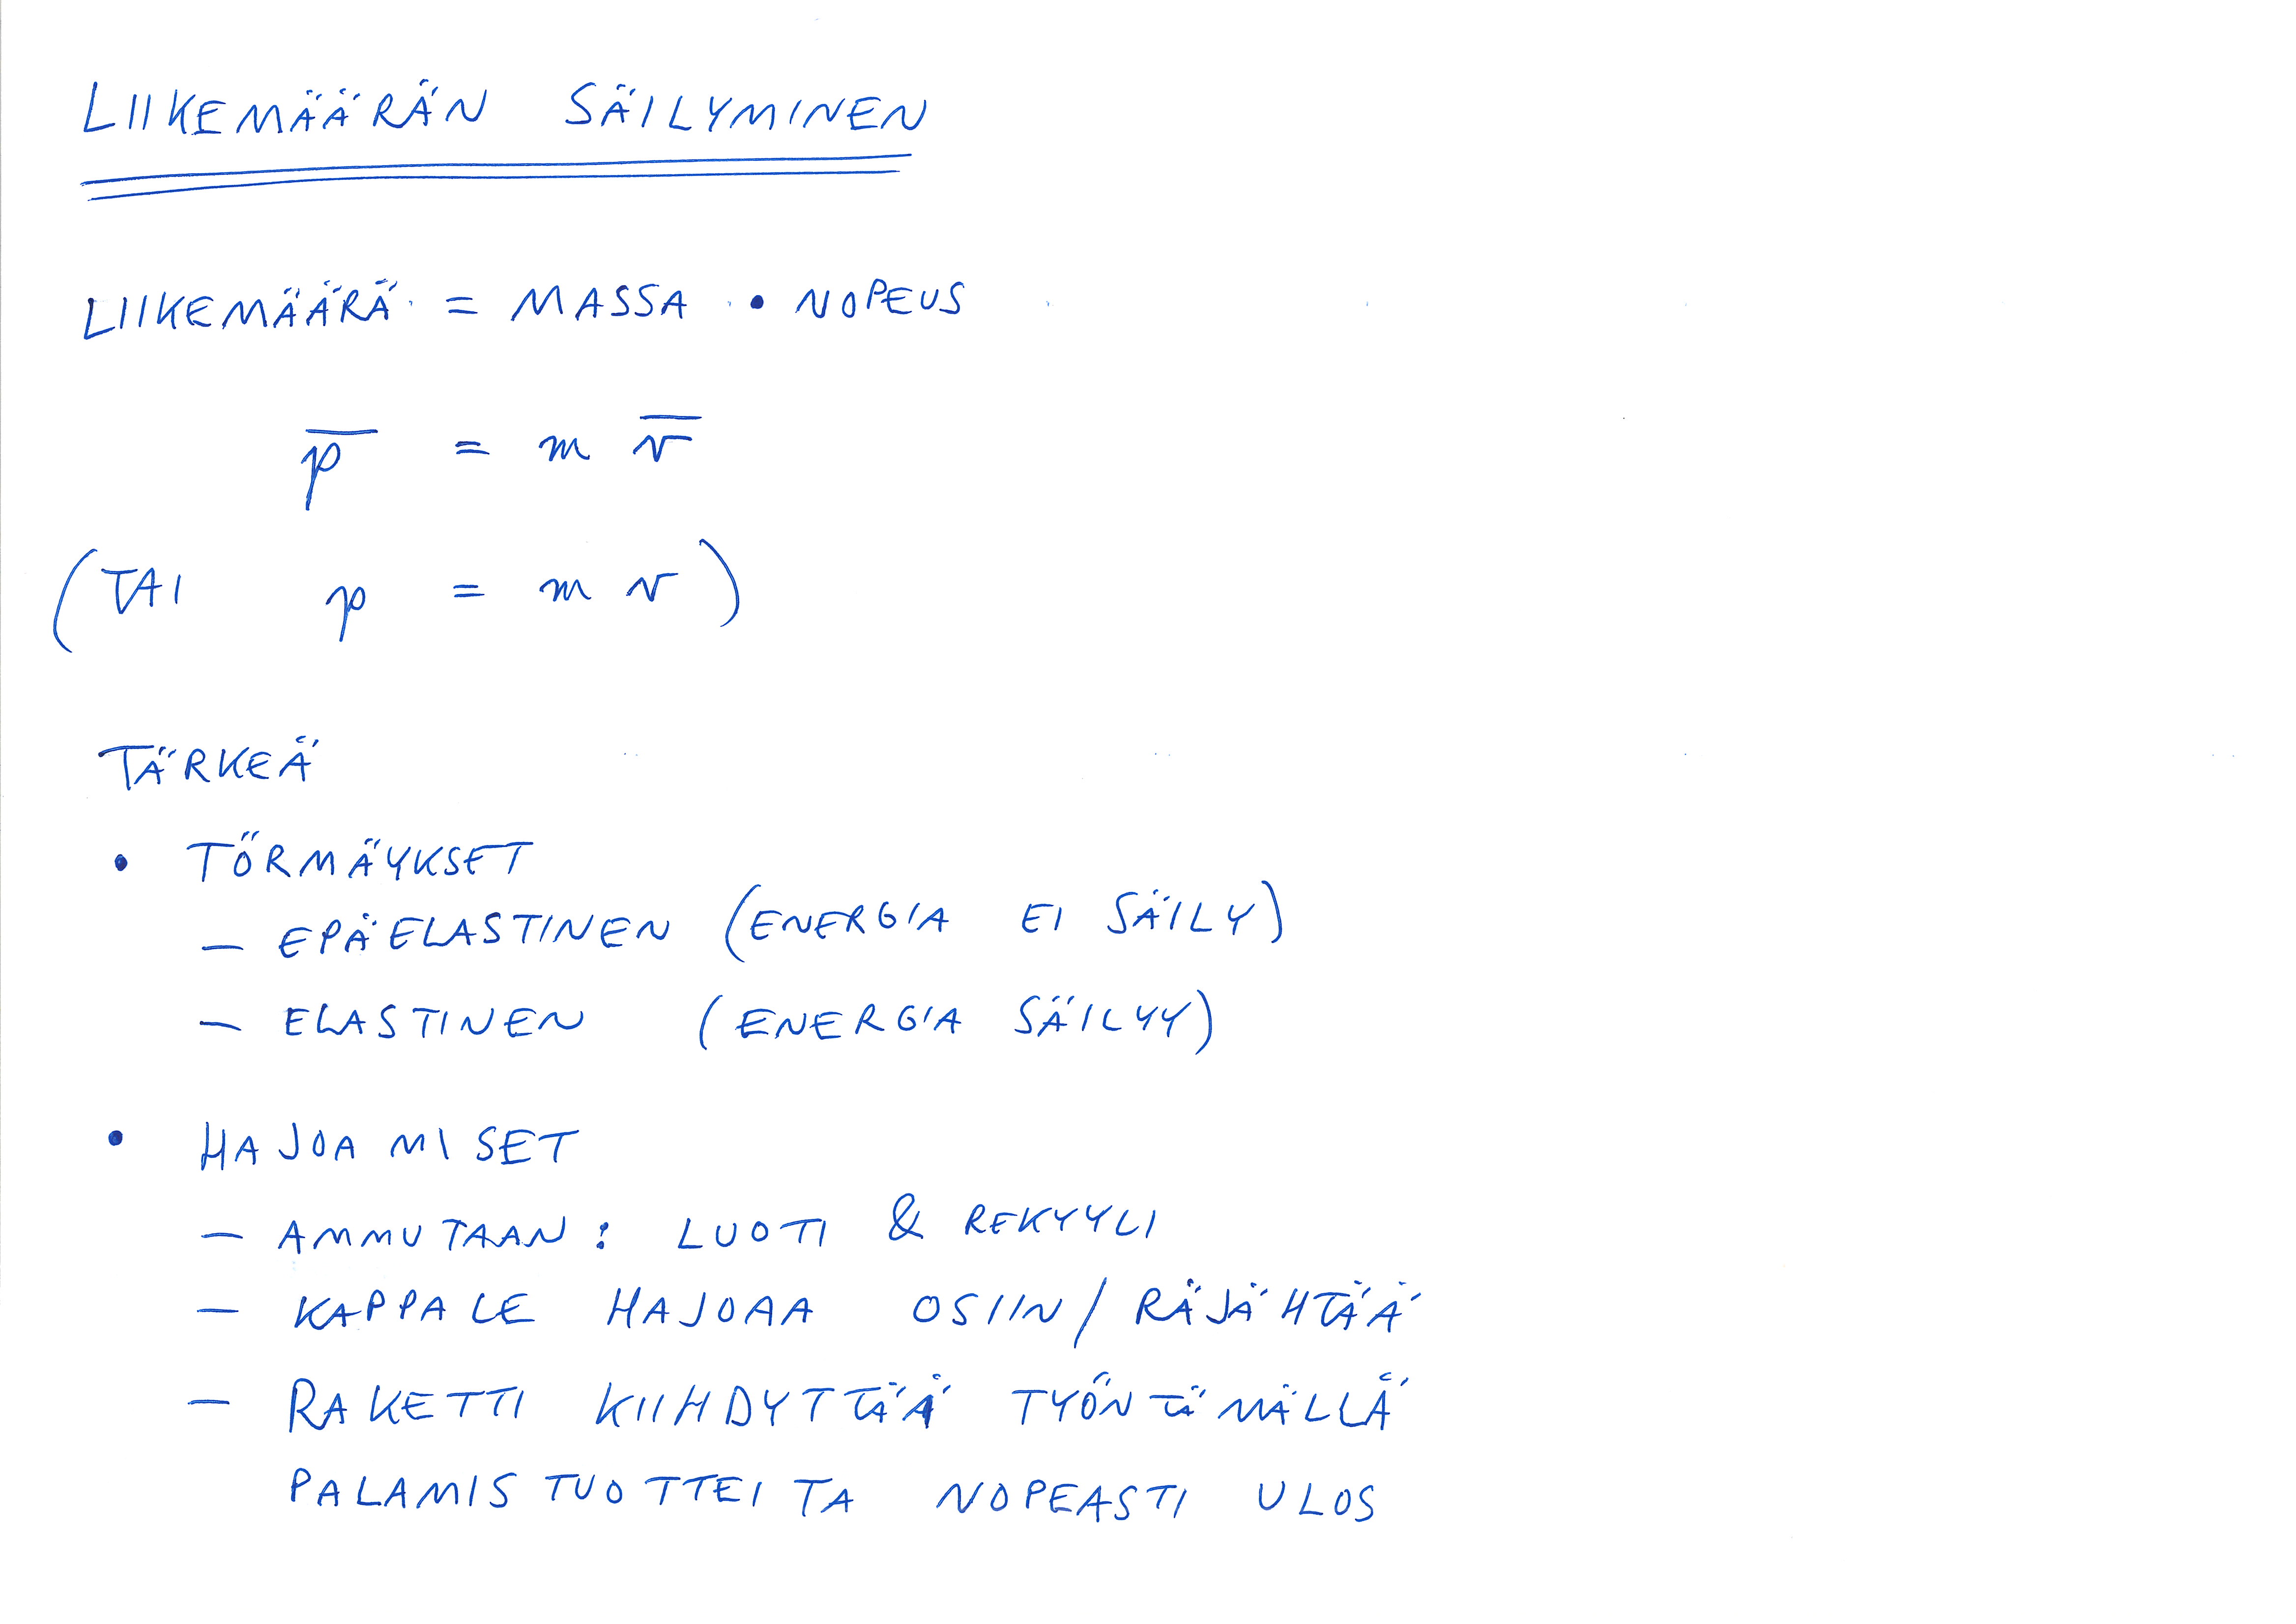 LIIKEMÄÄRÄN SÄILYMINEN
LIIKEMÄÄRÄ = MASSA • NOPEUS
p̅ = m v̅
(TAI p = m v)
TÄRKEÄ
• TÖRMÄYKSET
— EPÄELASTINEN (ENERGIA EI SÄILY)
— ELASTINEN (ENERGIA SÄILYY)
• HAJOAMISET
— AMMUTAAN: LUOTI & REKYYLI
— KAPPALE HAJOAA OSIIN/RÄJÄHTÄÄ
— RAKETTI KIIHDYTTÄÄ TYÖNTÄMÄLLÄ
PALAMISTUOTTEITA NOPEASTI ULOS